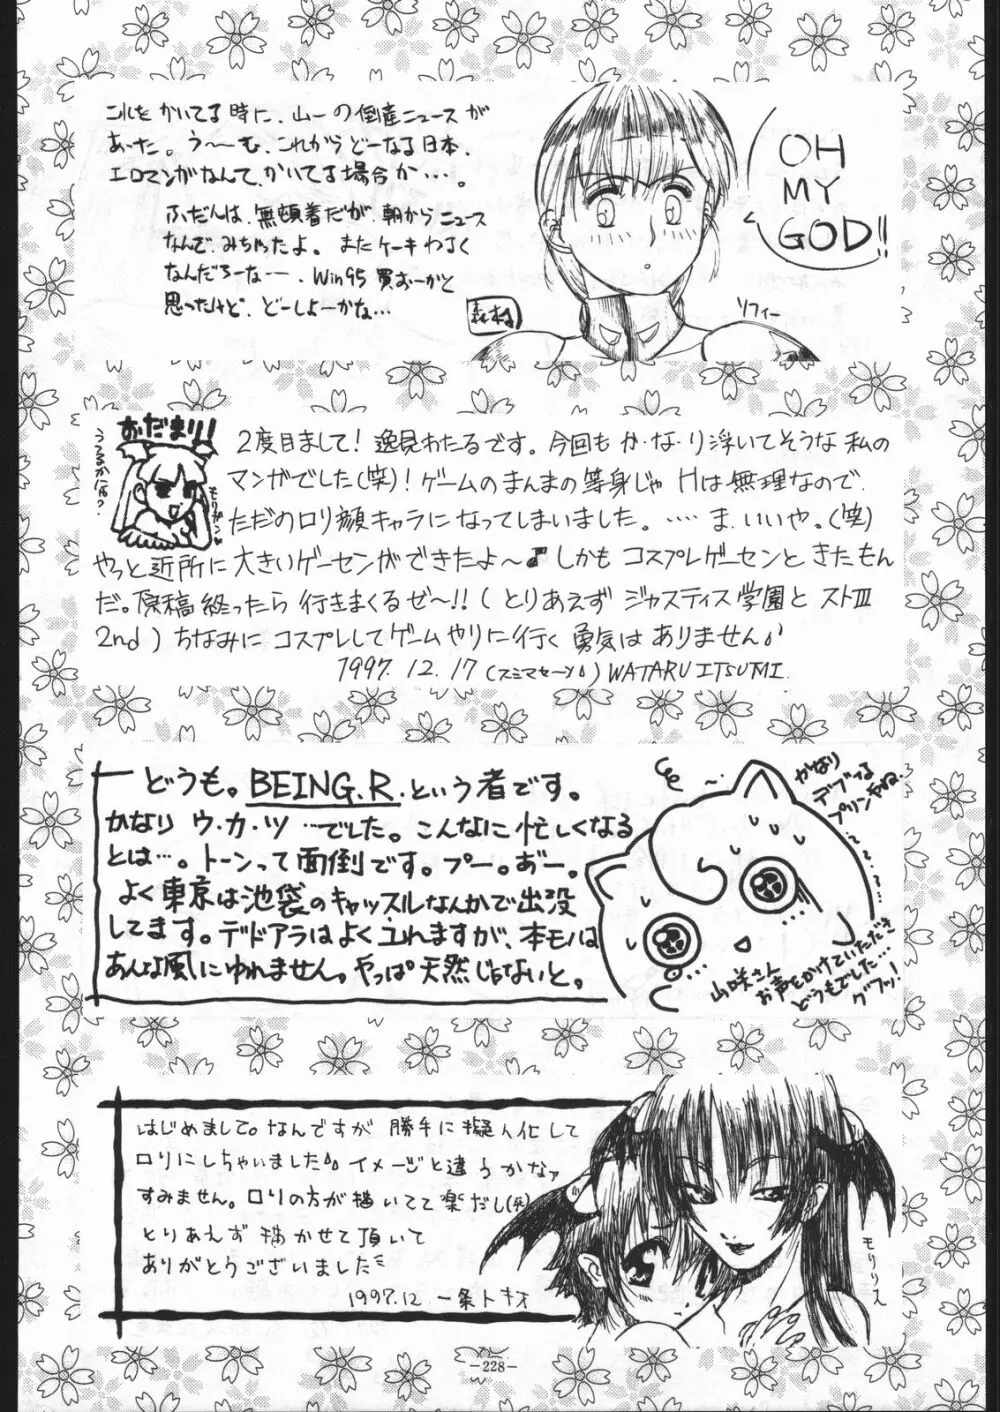 これをかいてる時に、山一の倒産ニュースが
あった。う〜む、これからどーなる日本、
エロマンガなんて、かいてる場合か…。
ふだんは、無頓着だが、朝からニュース
なんぞ、みちゃったよ。またケーキわるく
なんだろーなー。Win95買おーかと
思ったけど、どーしよーかな…
OH
MY
GOD!!
森村
ソフィー
おだまり!
モリガン
2度目まして! 逸見わたるです。今回もか・な・り浮いてそうな私の
マンガでした(笑)! ゲームのまんまの等身じゃHは無理なので、
ただのロリ顔キャラになってしまいました。…‥ま、いいや。(笑)
やっと近所に大きいゲーセンができたよ〜♪しかもコスプレゲーセンときたもん
だ。原稿終ったら行きまくるぜ〜!!(とりあえずジャスティス学園とストⅢ
2nd)ちなみにコスプレしてゲームやりに行く勇気はありません
1997.12.17(スミマセーン)WATARU ITSUMI.
どうも。BEING.R.という者です。
かなりウ・カ・ツ…でした。こんなに忙しくなる
とは…。トーンって面倒です。プー。あ゙ー。
よく東京は池袋のキャッスルなんかで出没
してます。デドアラはよくユれますが、本モノは
あんな風にゆれません。やっぱ天然じゃないと。
かなり
デブィな
プリンやね、
山咲さん
お声をかけていただき
どうもでした…
グフッ!
はじめまして。なんですが勝手に擬人化して
ロリにしちゃいました イメージと違うかなァ
すみません。ロリの方が描いてて楽だし(死)
とりあえず描かせて頂いて
ありがとうございました
1997.12 一条トキオ
モリリえ
-228-